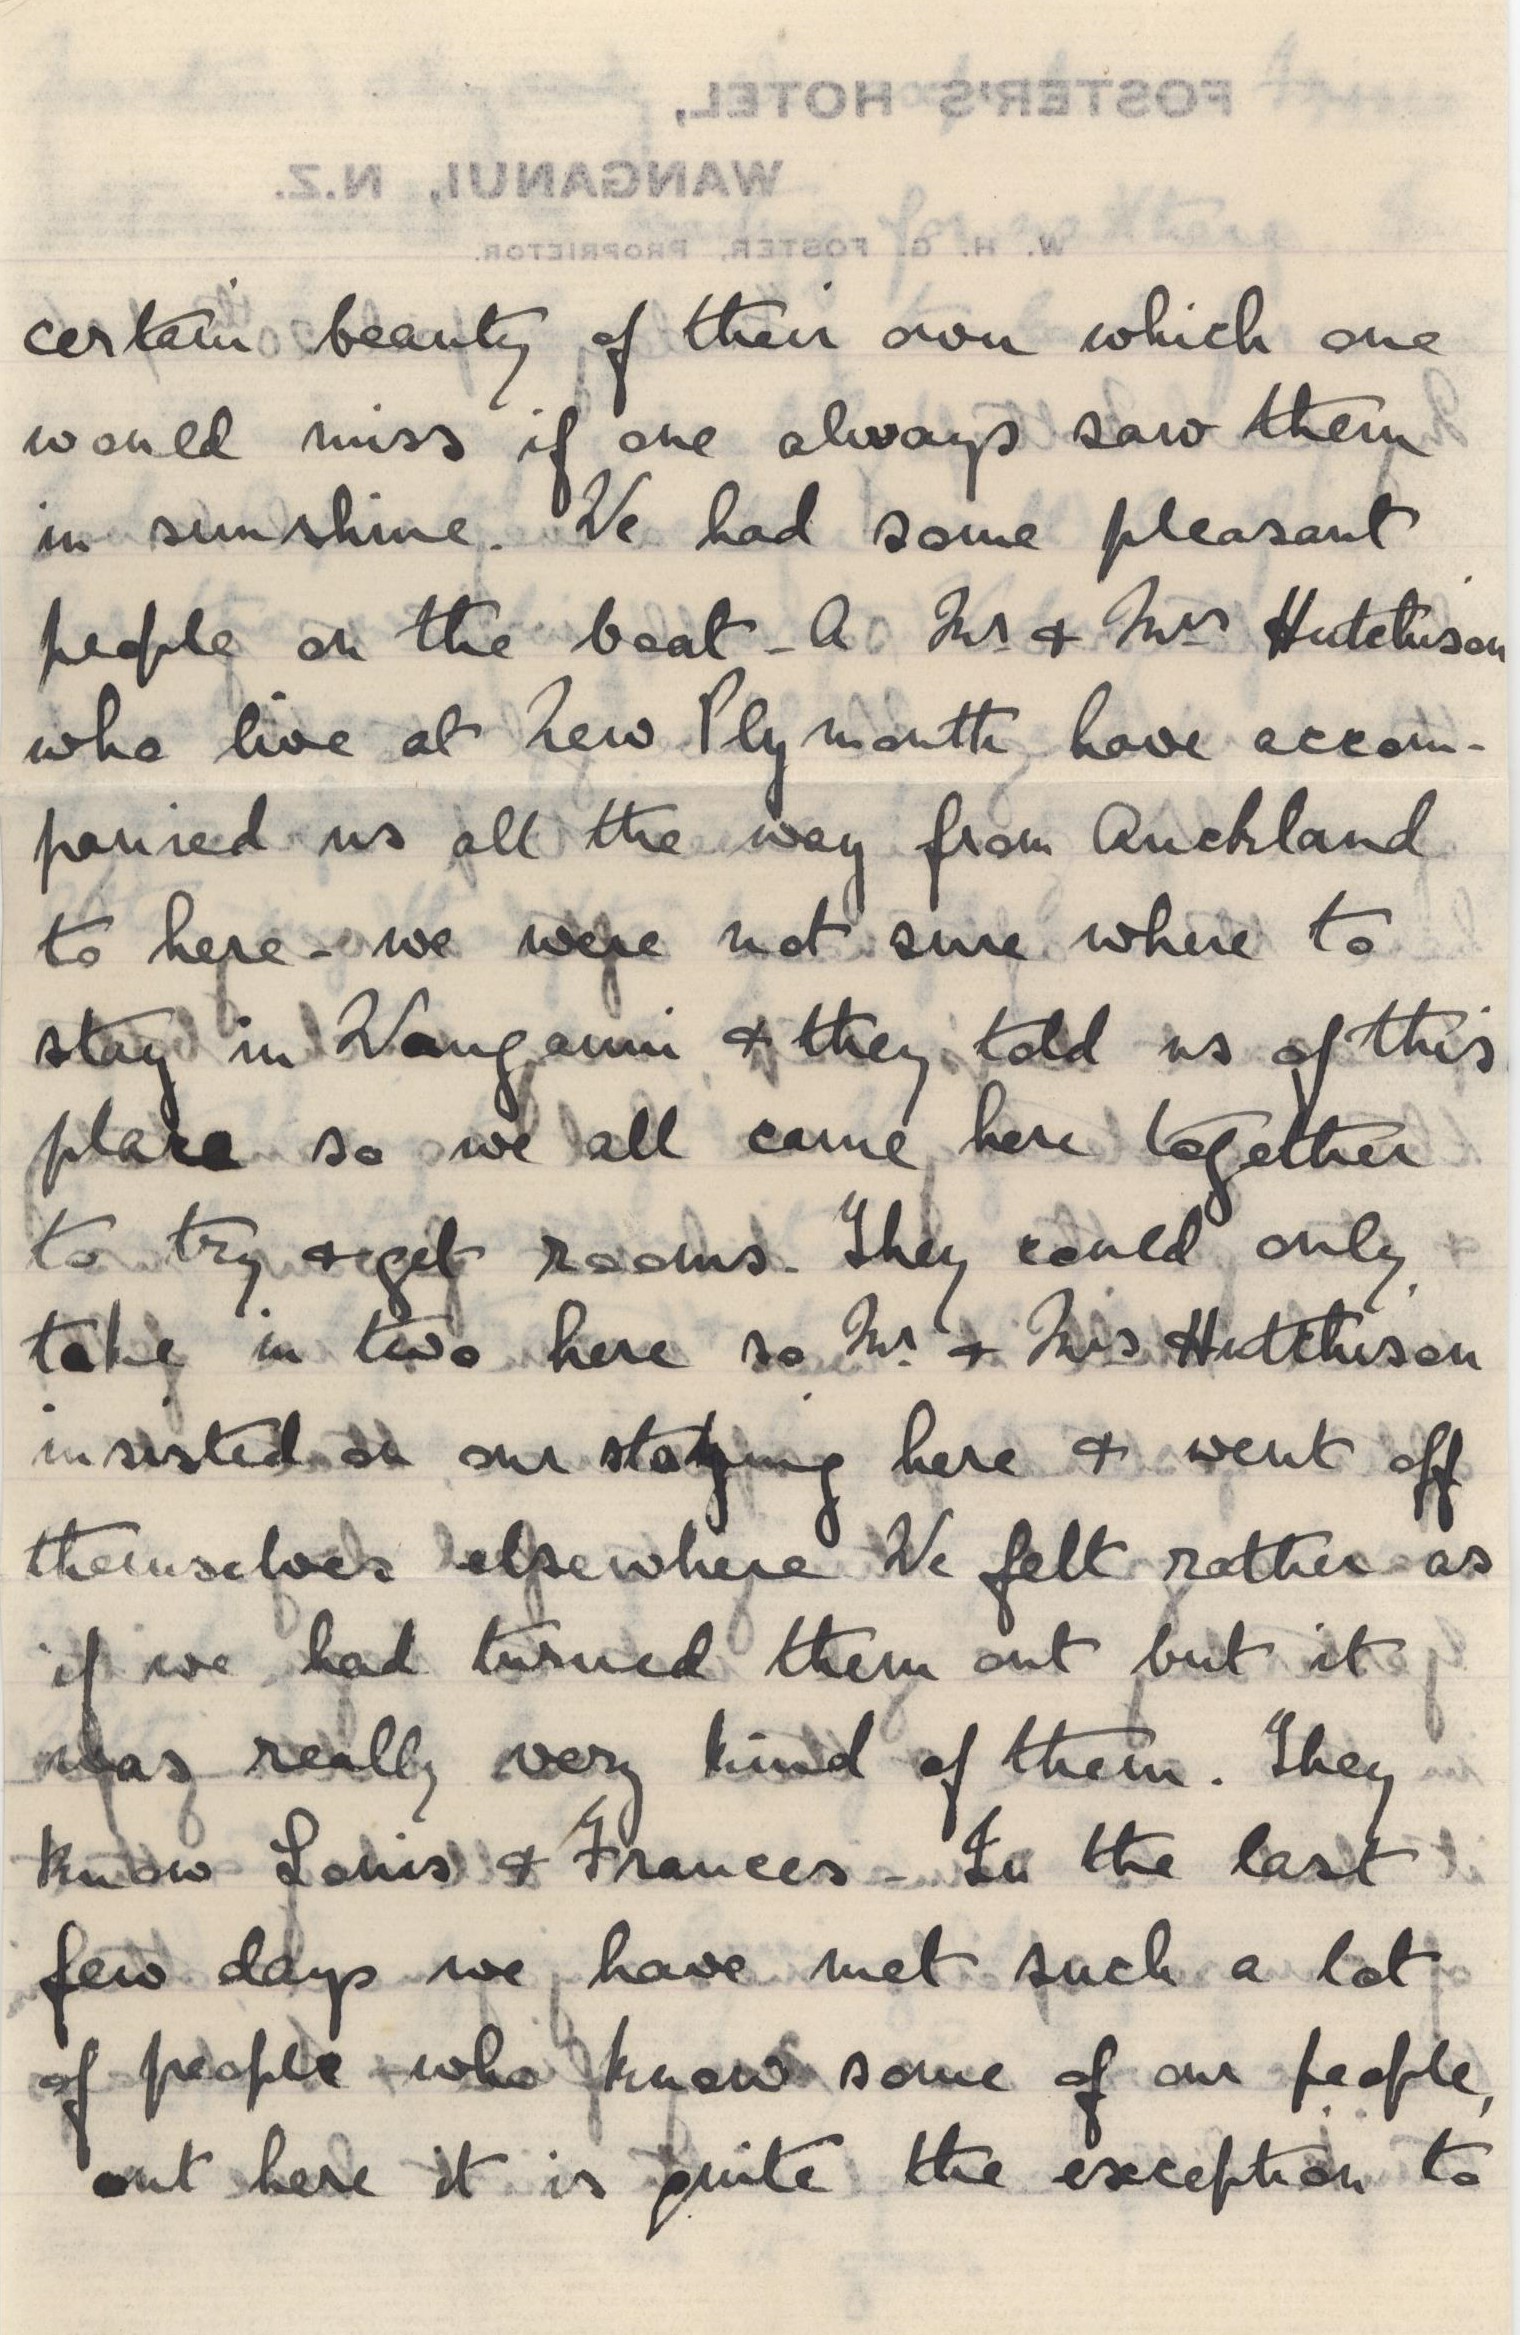 FOSTER'S HOTEL,
WANGANUI, N.Z.
W. H. G. FOSTER, PROPRIETOR.
certain beauty of their own which one
would miss if one always saw them
in sunshine. We had some pleasant
people on the boat - A Mr & Mrs Hutchison
who live at New Plymouth have accom-
panied us all the way from Auckland
to here - we were not sure where to
stay in Wanganui & they told us of this
place so we all came here together
to try & get rooms. They could only
take in two here so Mr. & Mrs Hutchison
insisted on our staying here & went off
themselves elsewhere We felt rather as
if we had turned them out but it
was really very kind of them. They
know Louis & Frances - In the last
few days we have met such a lot
of people who know some of our people,
out here it is quite the exception to